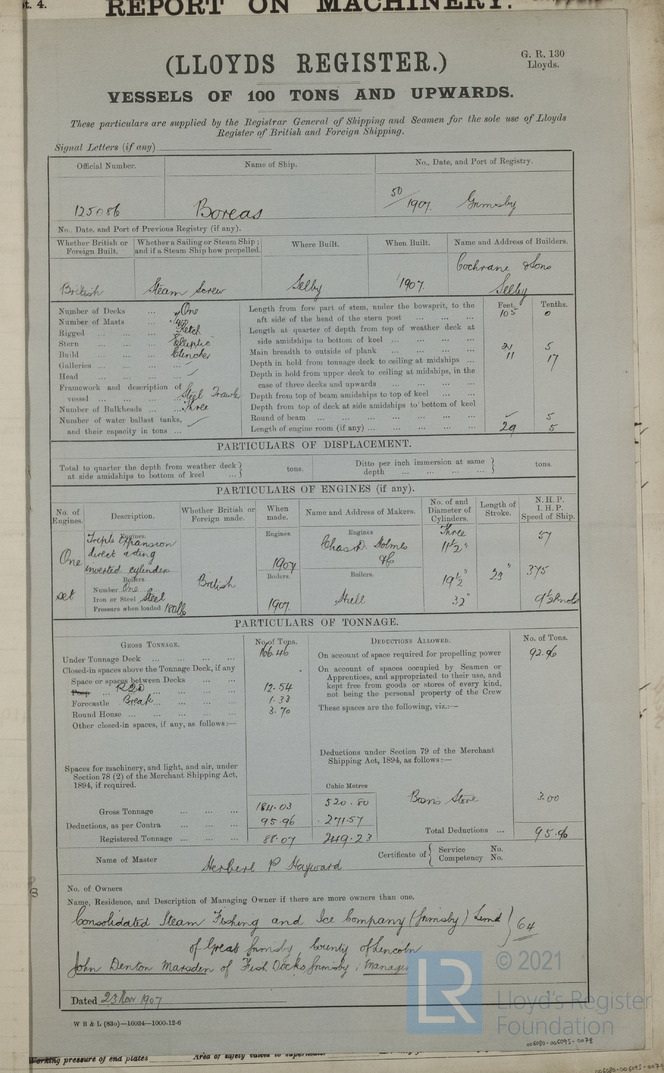 t. 4.
REPORT ON MACHINERY.
(LLOYDS REGISTER.)
G. R. 130
Lloyds.
VESSELS OF 100 TONS AND UPWARDS.
These particulars are supplied by the Registrar General of Shipping and Seamen for the sole use of Lloyds
Register of British and Foreign Shipping.
Signal Letters (if any)
Official Number. Name of Ship. No., Date, and Port of Registry.
125086 Boreas 50/1907 Grimsby
No. Date, and Port of Previous Registry (if any).
Whether British or Foreign Built. Whether a Sailing or Steam Ship; and if a Steam Ship how propelled. Where Built. When Built. Name and Address of Builders.
British Steam Screw Selby 1907 Cochrane & Sons Selby
Number of Decks ... One
Number of Masts ... Two
Rigged ... Ketch
Stern ... Elliptic
Build ... Clencher
Galleries ...
Head ...
Framework and description of vessel ... Steel Trawler
Number of Bulkheads ... Three
Number of water ballast tanks, and their capacity in tons ...
Feet. Tenths.
Length from fore part of stem, under the bowsprit, to the aft side of the head of the stern post ... 105 0
Length at quarter of depth from top of weather deck at side amidships to bottom of keel ...
Main breadth to outside of plank ... 21 5
Depth in hold from tonnage deck to ceiling at midships ... 11 17
Depth in hold from upper deck to ceiling at midships, in the case of three decks and upwards ...
Depth from top of beam amidships to top of keel ...
Depth from top of deck at side amidships to bottom of keel
Round of beam ... 5
Length of engine room (if any) ... 29 5
PARTICULARS OF DISPLACEMENT.
Total to quarter the depth from weather deck at side amidships to bottom of keel ... tons. Ditto per inch immersion at same depth ... tons.
PARTICULARS OF ENGINES (if any).
No. of Engines. Description. Whether British or Foreign made. When made. Name and Address of Makers. No. of and Diameter of Cylinders. Length of Stroke. N.H.P. I.H.P. Speed of Ship.
One set
Engines.
Triple Expansion
direct acting
inverted cylinder
Boilers.
Number One
Iron or Steel Steel
Pressure when loaded 180 lb
British
Engines. 1907
Boilers. 1907
Engines
Chas. D. Holmes & Co
Boilers.
Hull
Three
11½"
19½"
32"
23"
57
375
9½ Knots
PARTICULARS OF TONNAGE.
GROSS TONNAGE. No. of Tons.
Under Tonnage Deck ... 166.46
Closed-in spaces above the Tonnage Deck, if any
Space or spaces between Decks ...
Poop ... 12.54
Forecastle Break ... 1.33
Round House ... 3.70
Other closed-in spaces, if any, as follows:—
Spaces for machinery, and light, and air, under Section 78 (2) of the Merchant Shipping Act, 1894, if required.
Cubic Metres
Gross Tonnage ... 184.03 520.80
Deductions, as per Contra ... 95.96 271.57
Registered Tonnage ... 88.07 249.23
DEDUCTIONS ALLOWED. No. of Tons.
On account of space required for propelling power 92.96
On account of spaces occupied by Seamen or Apprentices, and appropriated to their use, and kept free from goods or stores of every kind, not being the personal property of the Crew
These spaces are the following, viz.:—
Deductions under Section 79 of the Merchant Shipping Act, 1894, as follows:—
Bosns Store 3.00
Total Deductions ... 95.96
Name of Master Herbert P Hayward
Certificate of { Service No. Competency No.
No. of Owners
Name, Residence, and Description of Managing Owner if there are more owners than one.
Consolidated Steam Fishing and Ice Company (Grimsby) Limd } 64
of Great Grimsby, County of Lincoln
John Denton Marsden of Fish Docks, Grimsby, Manager
Dated 23 Nov 1907
W B & L (83o)—16034—1000-12-6
LR
© 2021
Lloyd's Register
Foundation
006080-006095-0078
Working pressure of end plates